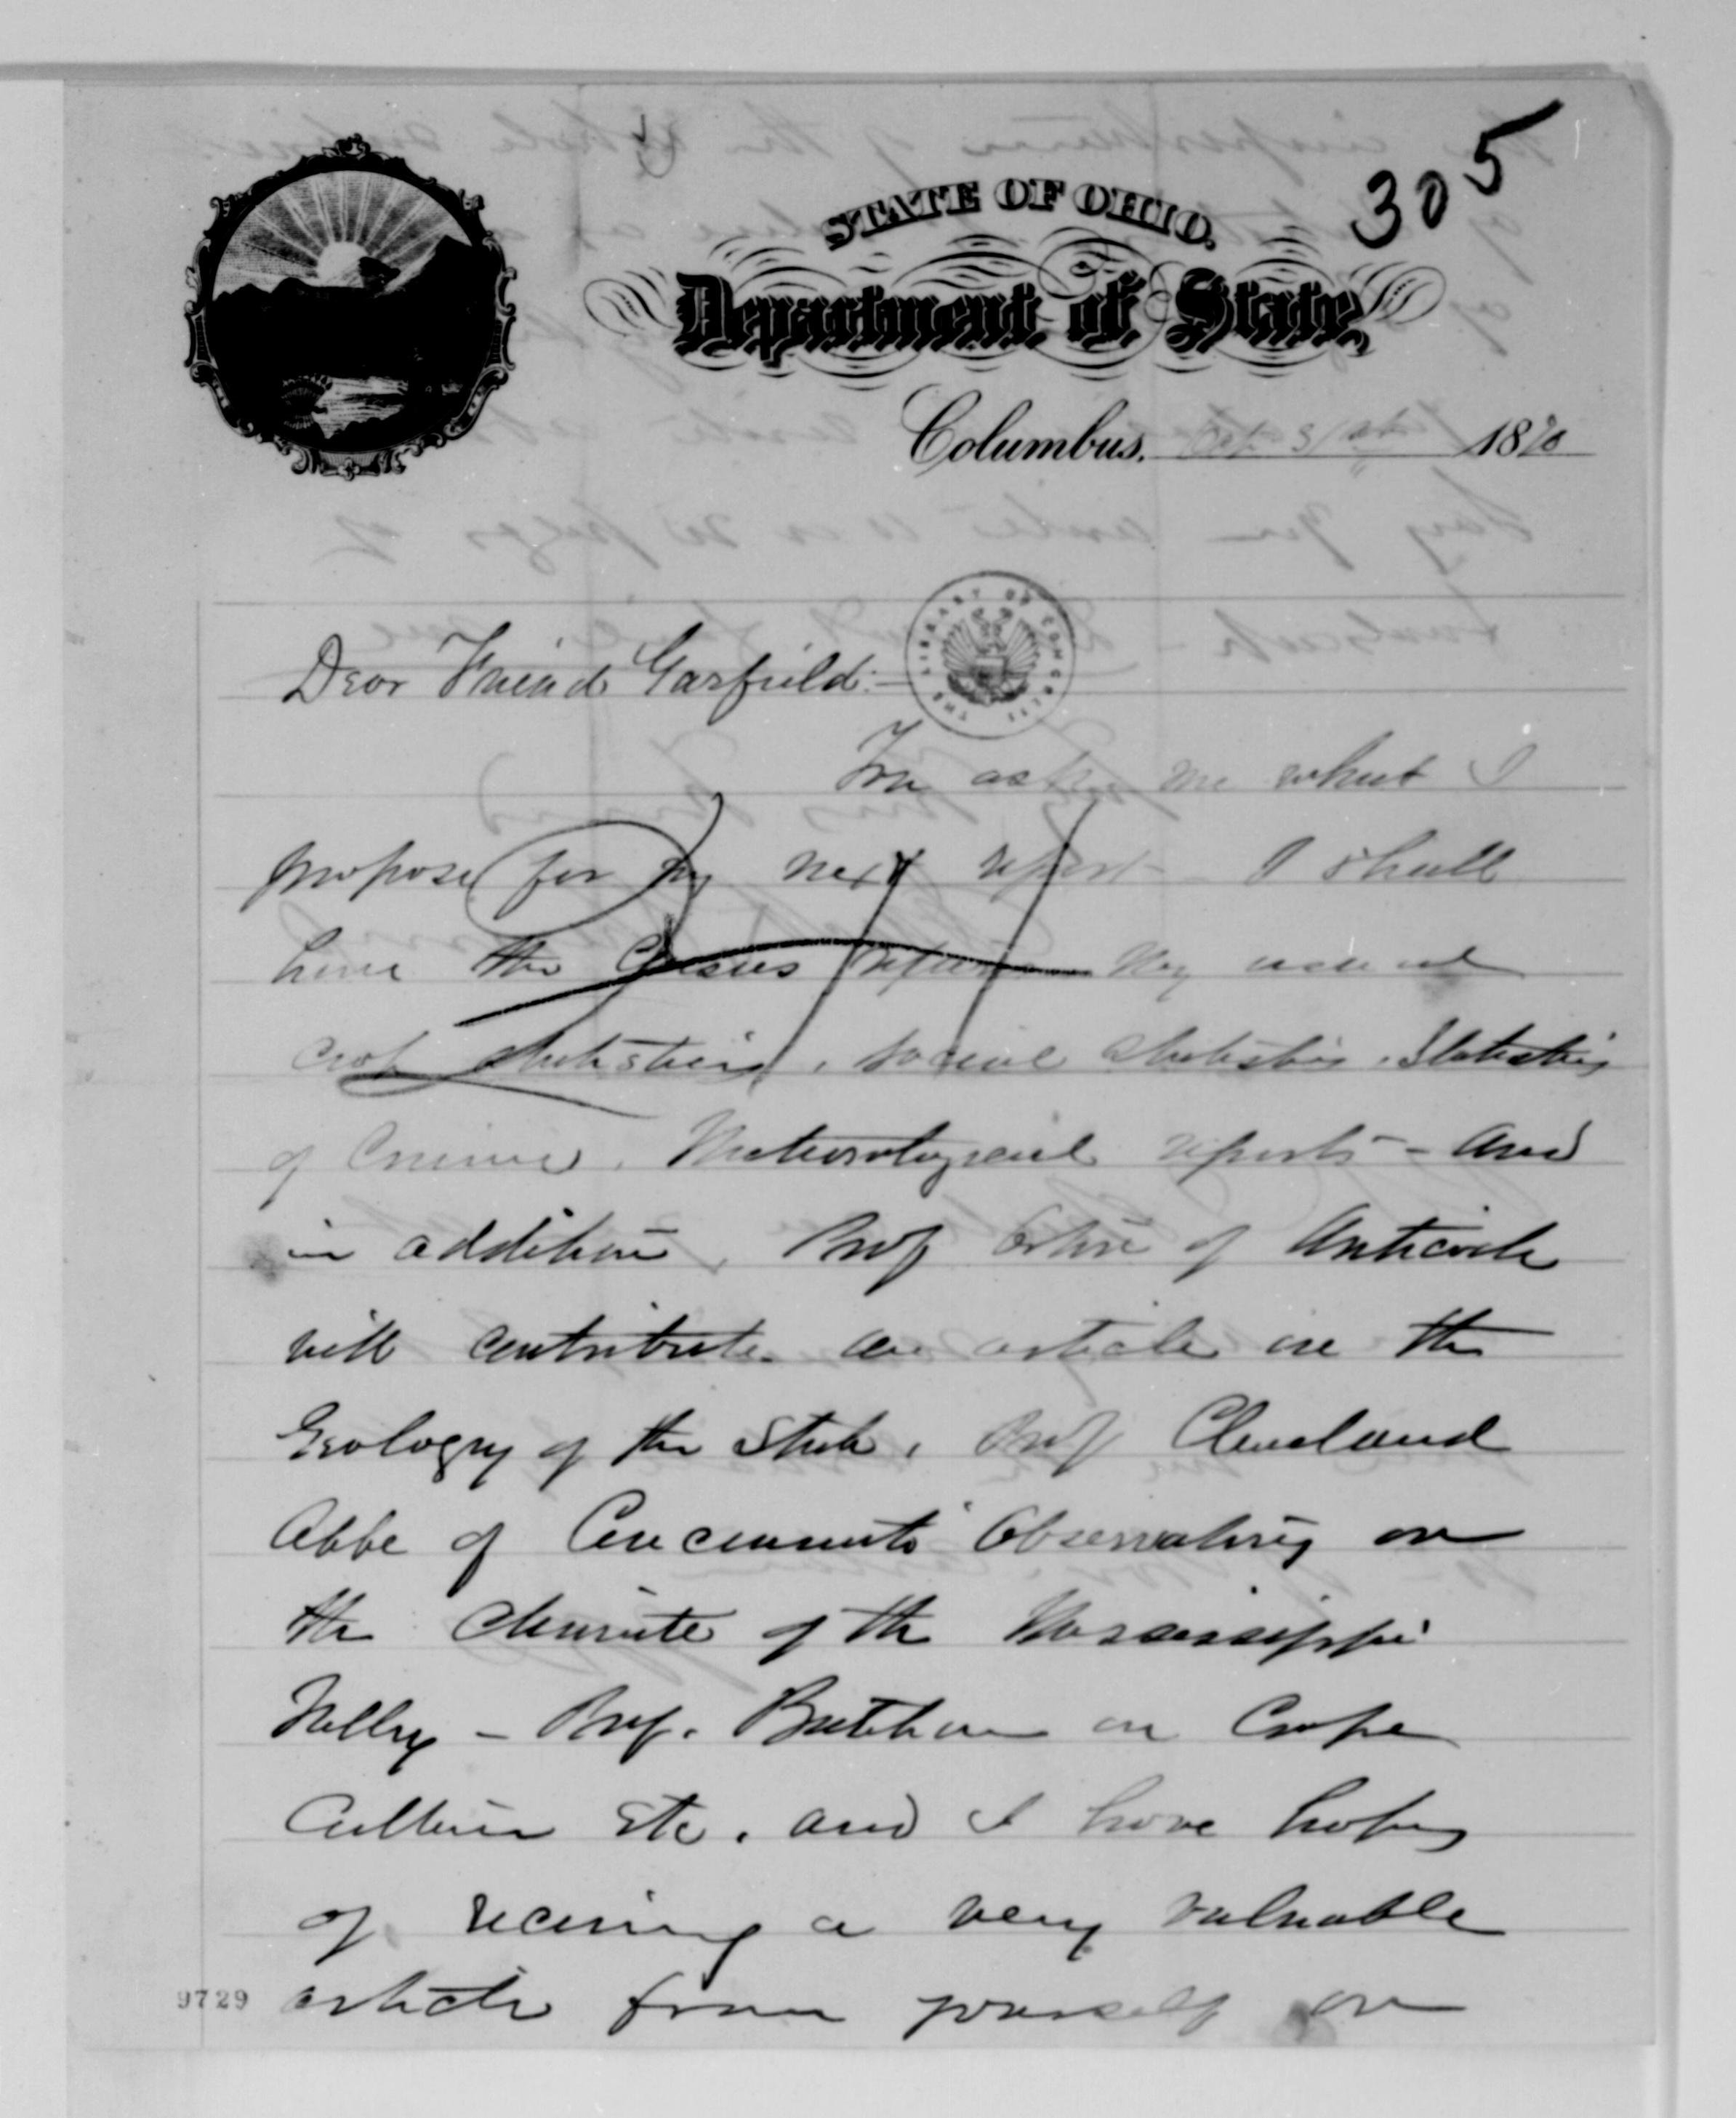 305
STATE OF OHIO.
Department of State,
Columbus, Oct 31st 1870
THE LIBRARY OF CONGRESS
Dear Friend Garfield:—
You ask me what I
propose for my next report — I shall
have the Census returns my usual
crop statistics, social statistics, Statistics
of Crime, Meteorological reports — and
in addition, Prof Orton of Antioch
will contribute an article on the
Geology of the State, Prof Cleveland
Abbe of Cincinnati Observatory on
the climate of the Mississippi
Valley — Prof. on Grape
Culture etc. and I have hopes
of receiving a very valuable
article from yourself on
9729